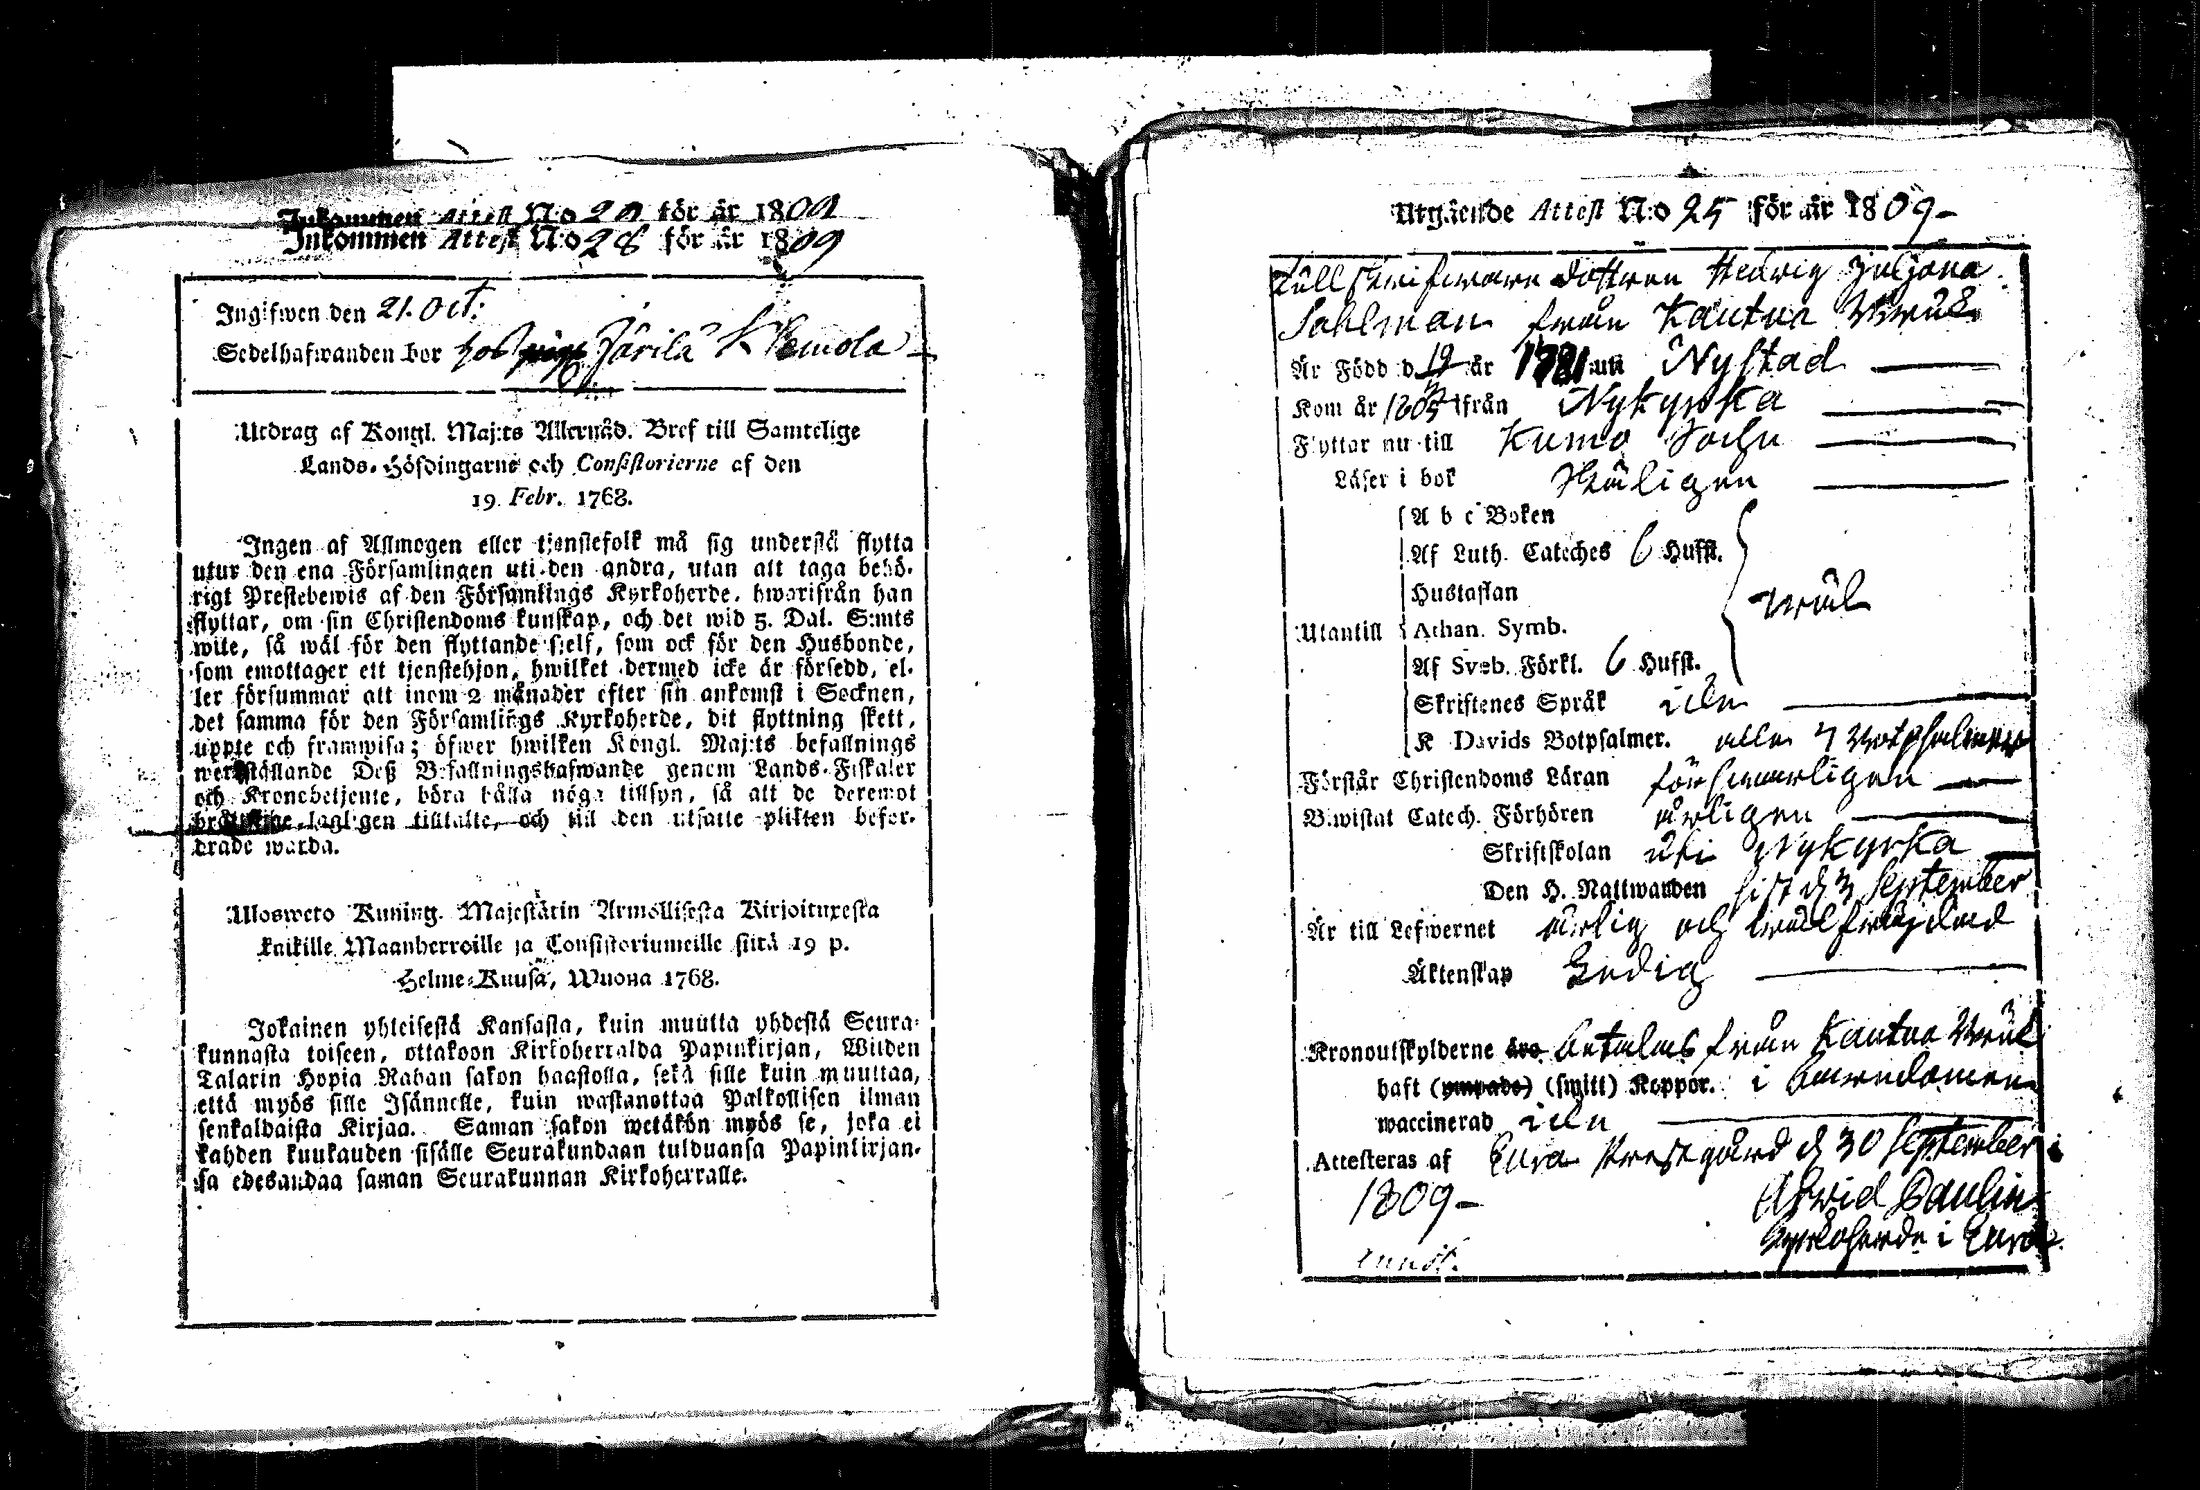 Inkommen Attest N:o 28 för år 1809
Inkommen Attest N:o 28 för år 1809
Ingifwen den 21. Oct:
Sedelhafwanden bor hos Järilä Klemola
Utdrag af Kongl. Maj:ts Allernåd. Bref till Samtelige
Lands-Höfdingarne och Consistorierne af den
19 Febr. 1768.
Ingen af Allmogen eller tjenstefolk må sig understå flytta
utur den ena Församlingen uti den andra, utan att taga behö-
rigt Prestebewis af den Församlings Kyrkoherde, hwarifrån han
flyttar, om sin Christendoms kunskap, och det wid 5. Dal. S:mts
wite, så wäl för den flyttande sjelf, som ock för den Husbonde,
som emottager ett tjenstehjon, hwilket dermed icke är försedd, el-
ler försummar att inom 2 månader efter sin ankomst i Socknen,
det samma för den Församlings Kyrkoherde, dit flyttning skett,
uppte och framwisa; öfwer hwilken Kongl. Maj:ts befallnings
werkställande Deß Befallningshafwande genom Lands-Fiskaler
och Kronobetjente, böra hålla nöga tillsyn, så att de deremot
brottslige lagligen tilltalte, och till den utsatte plikten befor-
drade warda.
Ulosweto Kuning. Majestätin Armollisesta Kirjoituxesta
kaikille Maanherroille ja Consistoriumeille siitä 19 p.
Helme-Kuusa, Wuona 1768.
Jokainen yhteisestä Kansasta, kuin muutta yhdestä Seura-
kunnasta toiseen, ottakoon Kirkoherralda Papinkirjan, Wiiden
Talarin Hopia Rahan sakon haastolla, sekä sille kuin muuttaa,
että myös sille Isännelle, kuin wastanottaa Palkollisen ilman
senkaldaista Kirjaa. Saman sakon wetäkön myös se, joka ei
kahden kuukauden sisälle Seurakundaan tulduansa Papinkirjan-
sa edesandaa saman Seurakunnan Kirkoherralle.
Utgående Attest N:o 25 för år 1809-
Tullskrifware dottren Hedwig Juljana
Sahlman från Kautua Bruk
Är Född d 19/ är 1781 uti Nystad
Kom år 1805 ifrån Nykyrka
Flyttar nu till Kumo Sochn
Läser i bok Skäligen
A b c Boken
Af Luth. Cateches 6 Hufst.
Hustaflan
wäl
Utantill Athan. Symb.
Af Sveb. Förkl. 6 Hufst.
Skriftenes Språk
K Davids Botpsalmer. alla 7 Botpsalmer
Förstår Christendoms Läran försvarligen
Biwistat Catech. Förhören årligen
Skriftskolan uti Nykyrka
Den H. Nattwarden sist d 3 September
Är till Lefwernet ärlig och wälfrägdad
Äktenskap Ledig
Kronoutskylderne äro betalas från Kautua Bruk
haft (ympade) (smitt) Koppor. i
waccinerad
Attesteras af Eura Prestgård d 30 September
1809-
Arwid Paulin
Kyrkoherde i Eura